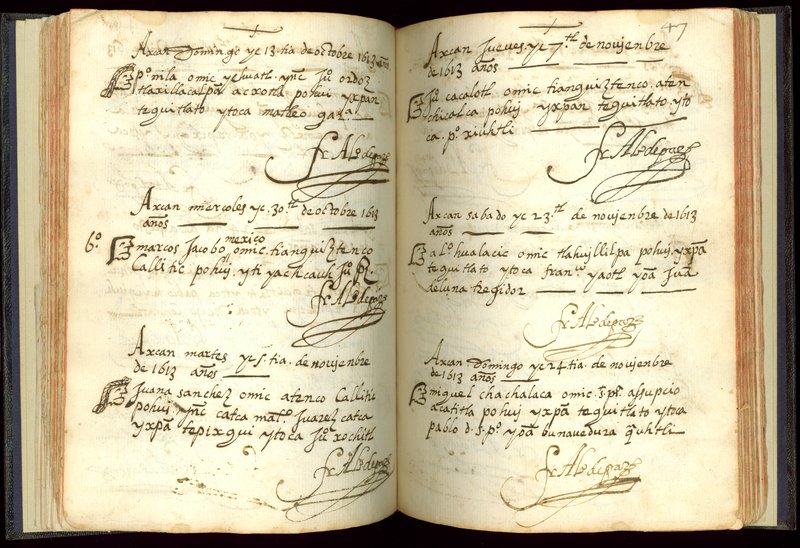 Axcan Domingo yc 13. tia. de octobre 1613 años
pº mila omic yehuatl. ynic Juº ordoz
tlaxillacalpā acxotla pohui yxpan
tequitlato ytoca matheo garª
fr Alº de paz
Axcan miercoles yc. 30.tli de octobre 1613
años
6º
mexico
marcos Jacobo omic. tianquiztenco
Callitic pohui. yti yachcauh Juº
fr Alº de paz
Axcan martes yc 5. tia. de noviembre
de 1613 años
Juana sanchez omic atenco Callitic
pohui ynic catca matº. Juarez catca
yxpā tepixqui ytoca Juº xochitl
fr Alº de paz
47
Axcan Jueves yc 7.tli de noviembre
de 1613 años
Juº cacalotl omic tianquiztenco. aten
chicalca pohui yxpan tequitlato. yto
ca. pº xiuhtli
fr Alº de paz
Axcan sabado yc 23.tli de noviembre de 1613
años
alº hualacic omic tlahuyllilpa pohui. yxpā
tequitlato ytoca franco yaotl yoā Jua
de luna tregidor
fr Alº de paz
Axcan Domingo yc 24 tia. de noviembre
de 1613 años
miguel chachalaca omic. S. pº. assupcio
acatitla pohui yxpā tequitlato ytoca
pablo d. S. pº yoā bunavedura quhtli
fr Alº de paz